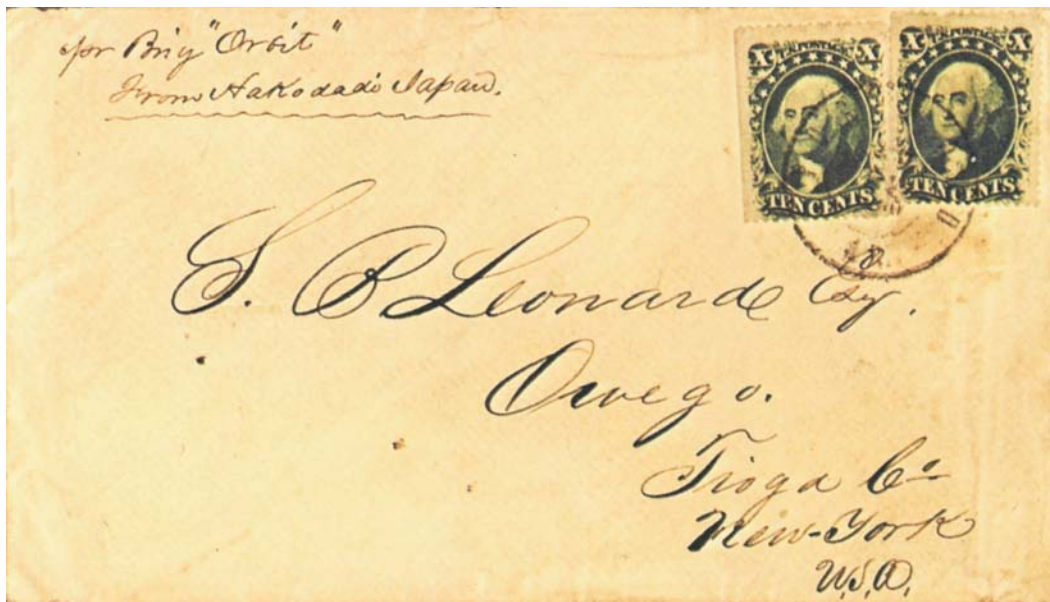 pr Brig "Orbit"
From Hakodadi Japan.
X U.S. POSTAGE X
TEN CENTS
X U.S. POSTAGE X
TEN CENTS
S. B Leonard Esq.
Owego.
Tioga Co
New-York
U.S.A.